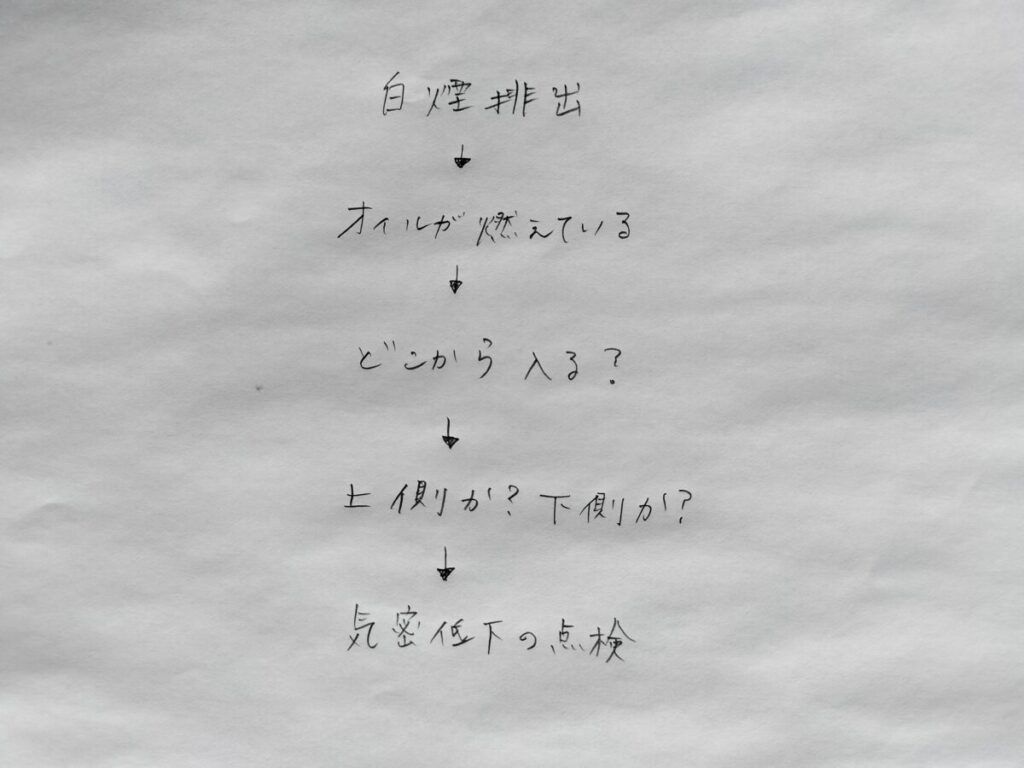 白煙排出
↓
オイルが燃えている
↓
どこから入る?
↓
上側か? 下側か?
↓
気密低下の点検